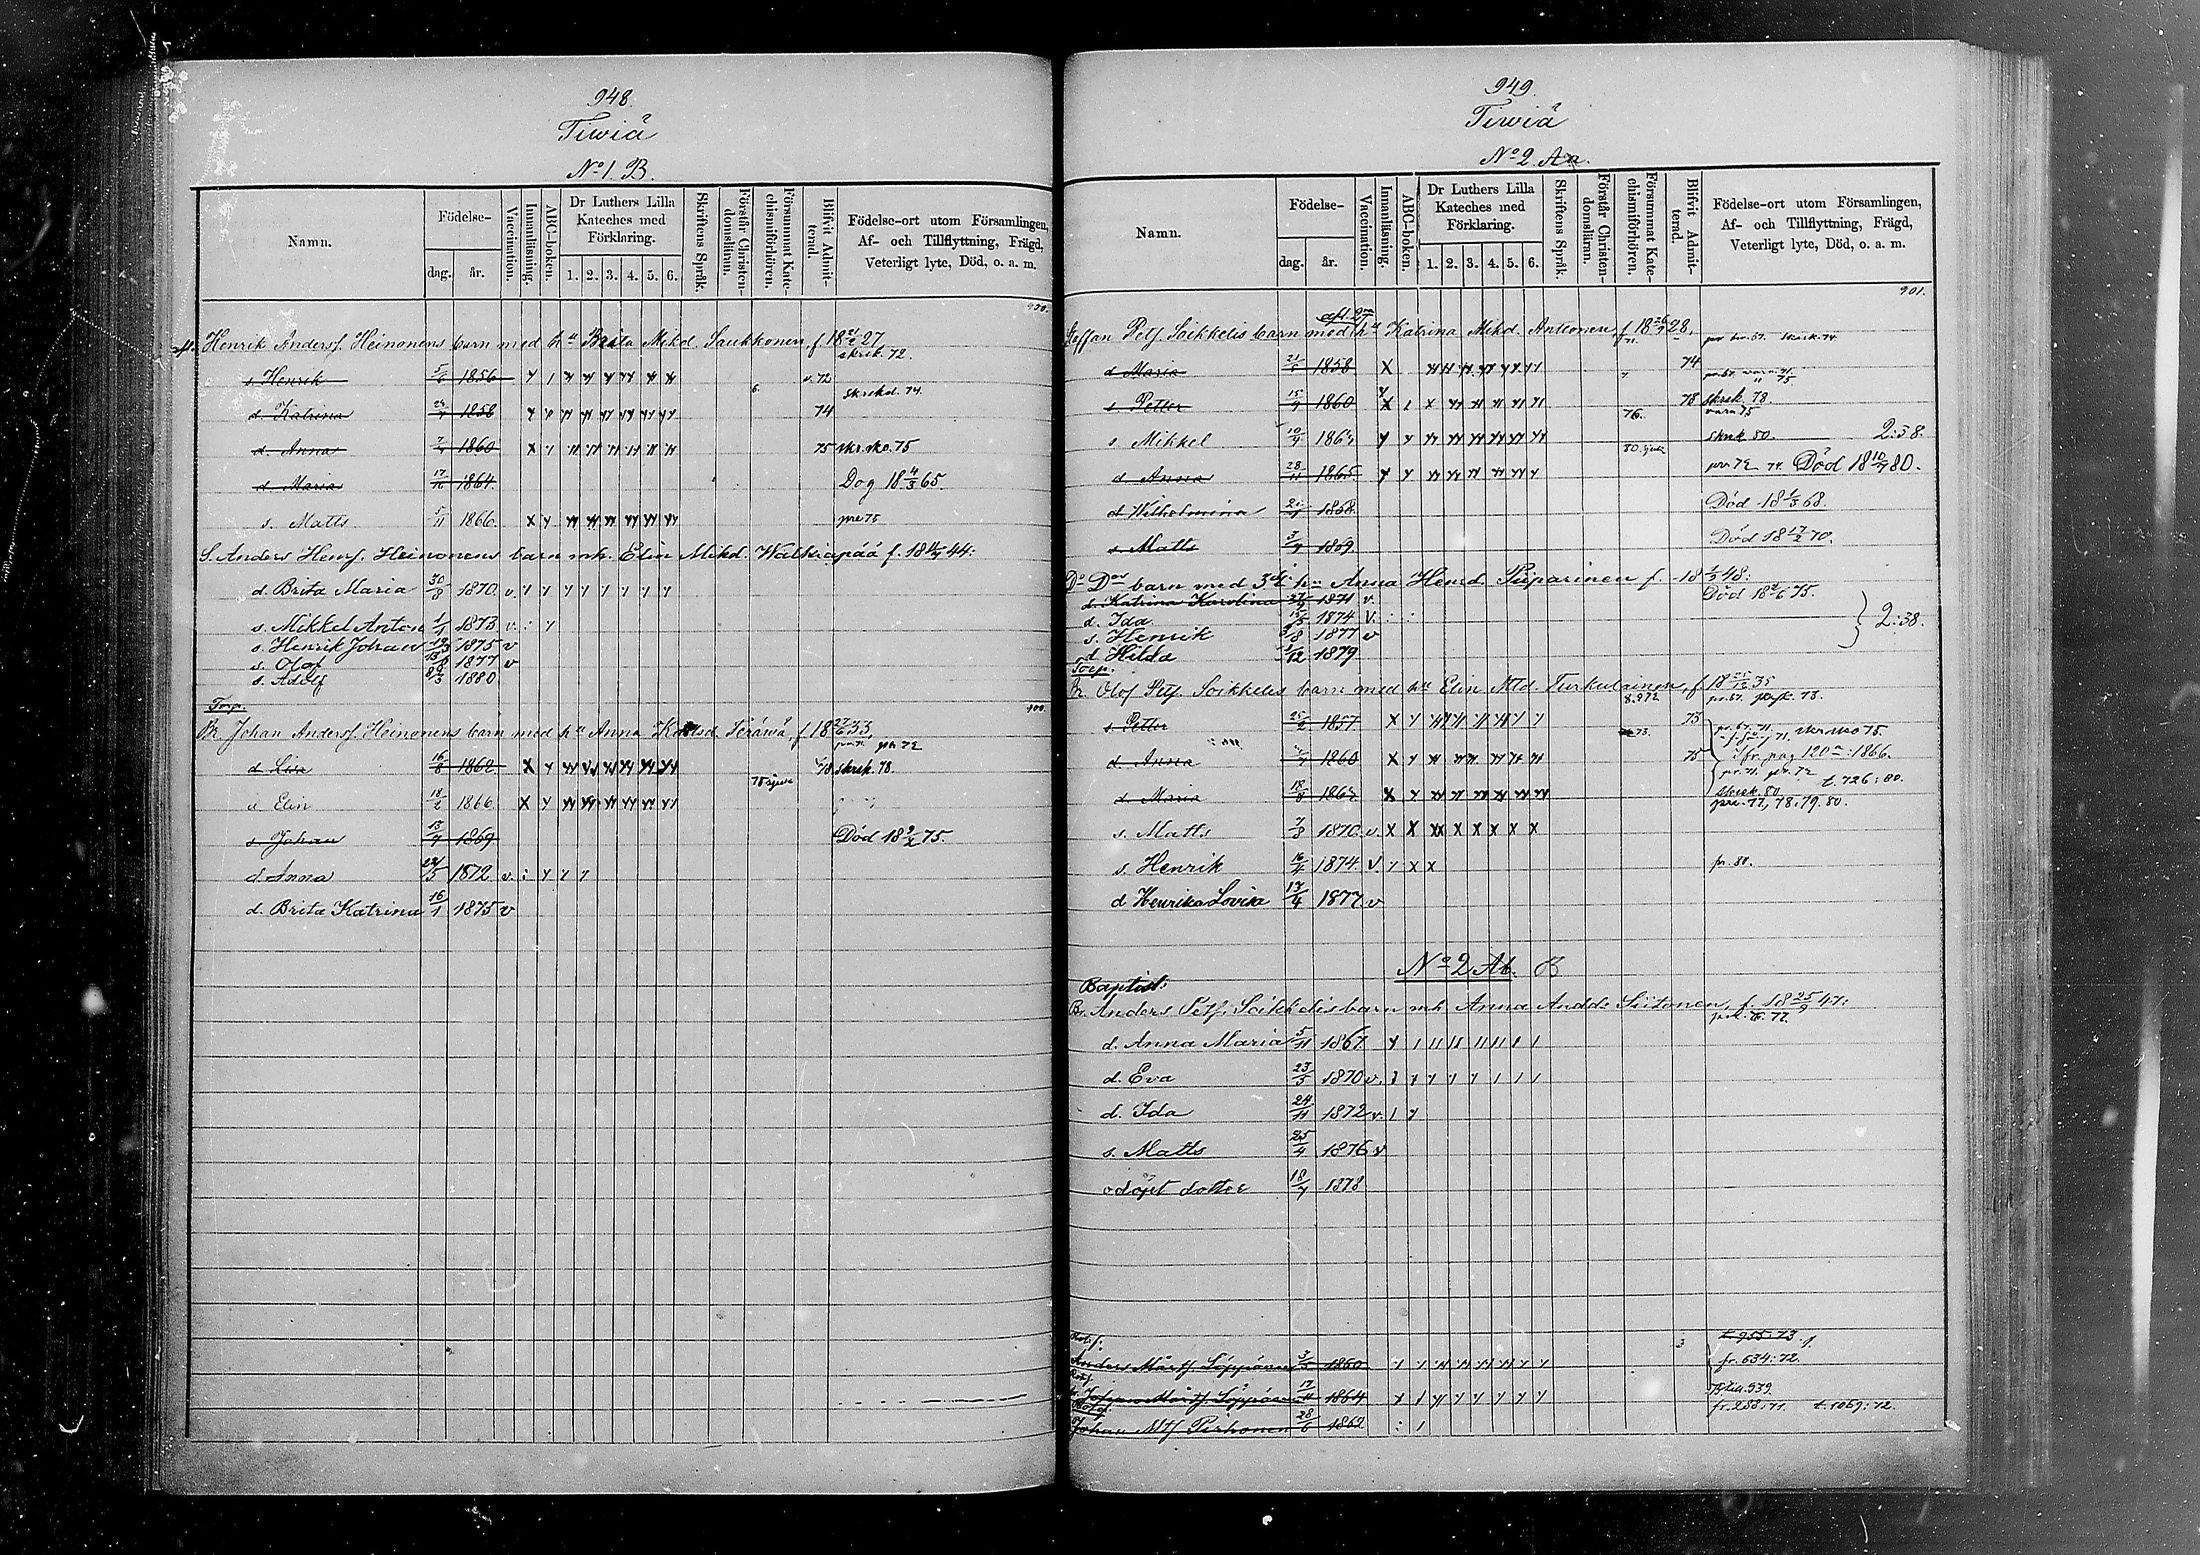 948.
Tiwiä
No 1. B.
Namn.
Födelse-
dag. år.
Vaccination.
Innanläsning.
ABC-boken.
Dr Luthers Lilla
Kateches med
Förklaring.
1. 2. 3. 4. 5. 6.
Skriftens Språk.
Förstår Christen-
domsläran.
Försummat Kate-
chismiförhören.
Blifvit Admit-
terad.
Födelse-ort utom Församlingen,
Af- och Tillflyttning, Frägd,
Veterligt lyte, Död, o. a. m.
Henrik Andersf. Heinonens barn med hu Brita Mikd. Saukkonen f 18 27
skrik. 72.
s. Henrik 1856 v. 72
skrikd. 74.
d. Katrina 1858 74
d. Anna 1860 75 skr.sko. 75
d. Maria 17 1864 Dog 18 4/3 65.
s. Matts 5/11 1866
S. Anders Henrs. Heinonens barn mh. Elin Mikd. Walkiapää f. 18 44:
d. Brita Maria 30/8 1870 v.
s. Mikkel Anton 1/1 1873 v.
s. Henrik Johan 1875 v
s. Olof 1877 v
s. Adolf 1880
Torp.
Br. Johan Andersf. Heinonens barn med hu Anna f 18 27/6 33.
d. Lisa 16/8 1862 78 skrik. 78.
d. Elin 18/2 1866
s. Johan 1869 Död 18 9/2 75.
d. Anna 1872 v.
d. Brita Katrina 16/1 1875 v
949.
Tiwiä
No 2. Aa.
Namn.
Födelse-
dag. år.
Vaccination.
Innanläsning.
ABC-boken.
Dr Luthers Lilla
Kateches med
Förklaring.
1. 2. 3. 4. 5. 6.
Skriftens Språk.
Förstår Christen-
domsläran.
Försummat Kate-
chismiförhören.
Blifvit Admit-
terad.
Födelse-ort utom Församlingen,
Af- och Tillflyttning, Frägd,
Veterligt lyte, Död, o. a. m.
901.
Staffan Petf. Soikkelis barn med hu Katrina Mikd. Anttonen f 18 28.
d. Maria 21/5 1858 74
s. Petter 15/9 1860 78 skrik. 78.
s. Mikkel 10/9 skrik 80. 2:38.
d. Anna 28/11 1865 Död 18 10/7 80.
d. Wilhelmina 1868 Död 18 1/5 68.
s. Matts 1869 Död 18 17/2 70.
Do Dos barn med 3dje hu Anna Henrd Piiparinen f. 18 48:
d. Katrina Karolina 1871 v. Död 18 75.
d. Ida 1874 v.
s. Henrik 1877 v 2:38.
d. Hilda 1879
Torp.
Br. Olof Petf. Soikkelis barn med hu Elin Mtd. Turkulainen, f 18 35
s. Petter 25/2 1857 73
d. Anna 1860 75 Jfr pag 120 :1866.
t. 726:80.
d. Maria 18/8 skrik. 80
77, 78, 79. 80.
s. Matts 7/8 1870 v.
s. Henrik 16/4 1874 v. pr. 80.
d Henrika Lovisa 17/4 1877 v
No 2 Ab. B
Baptist:
Br. Anders Petf. Soikkelis barn mh Anna Andds Siitonen, f. 18 25/9 47:
d. Anna Maria 5/11 1867
d. Eva 23/5 1870 v.
d. Ida 24/11 1872 v.
s. Matts 25/4 1876 v
odöpt dotter 18/7 1878
t. 955:73.
Anders Mårtf. Löppönen 3/5 1860 fr. 634:72.
17/11 1864 till. 939.
fr. 288:71. t. 1069:72.
Johan Mtf Pirhonen 28/6 1862